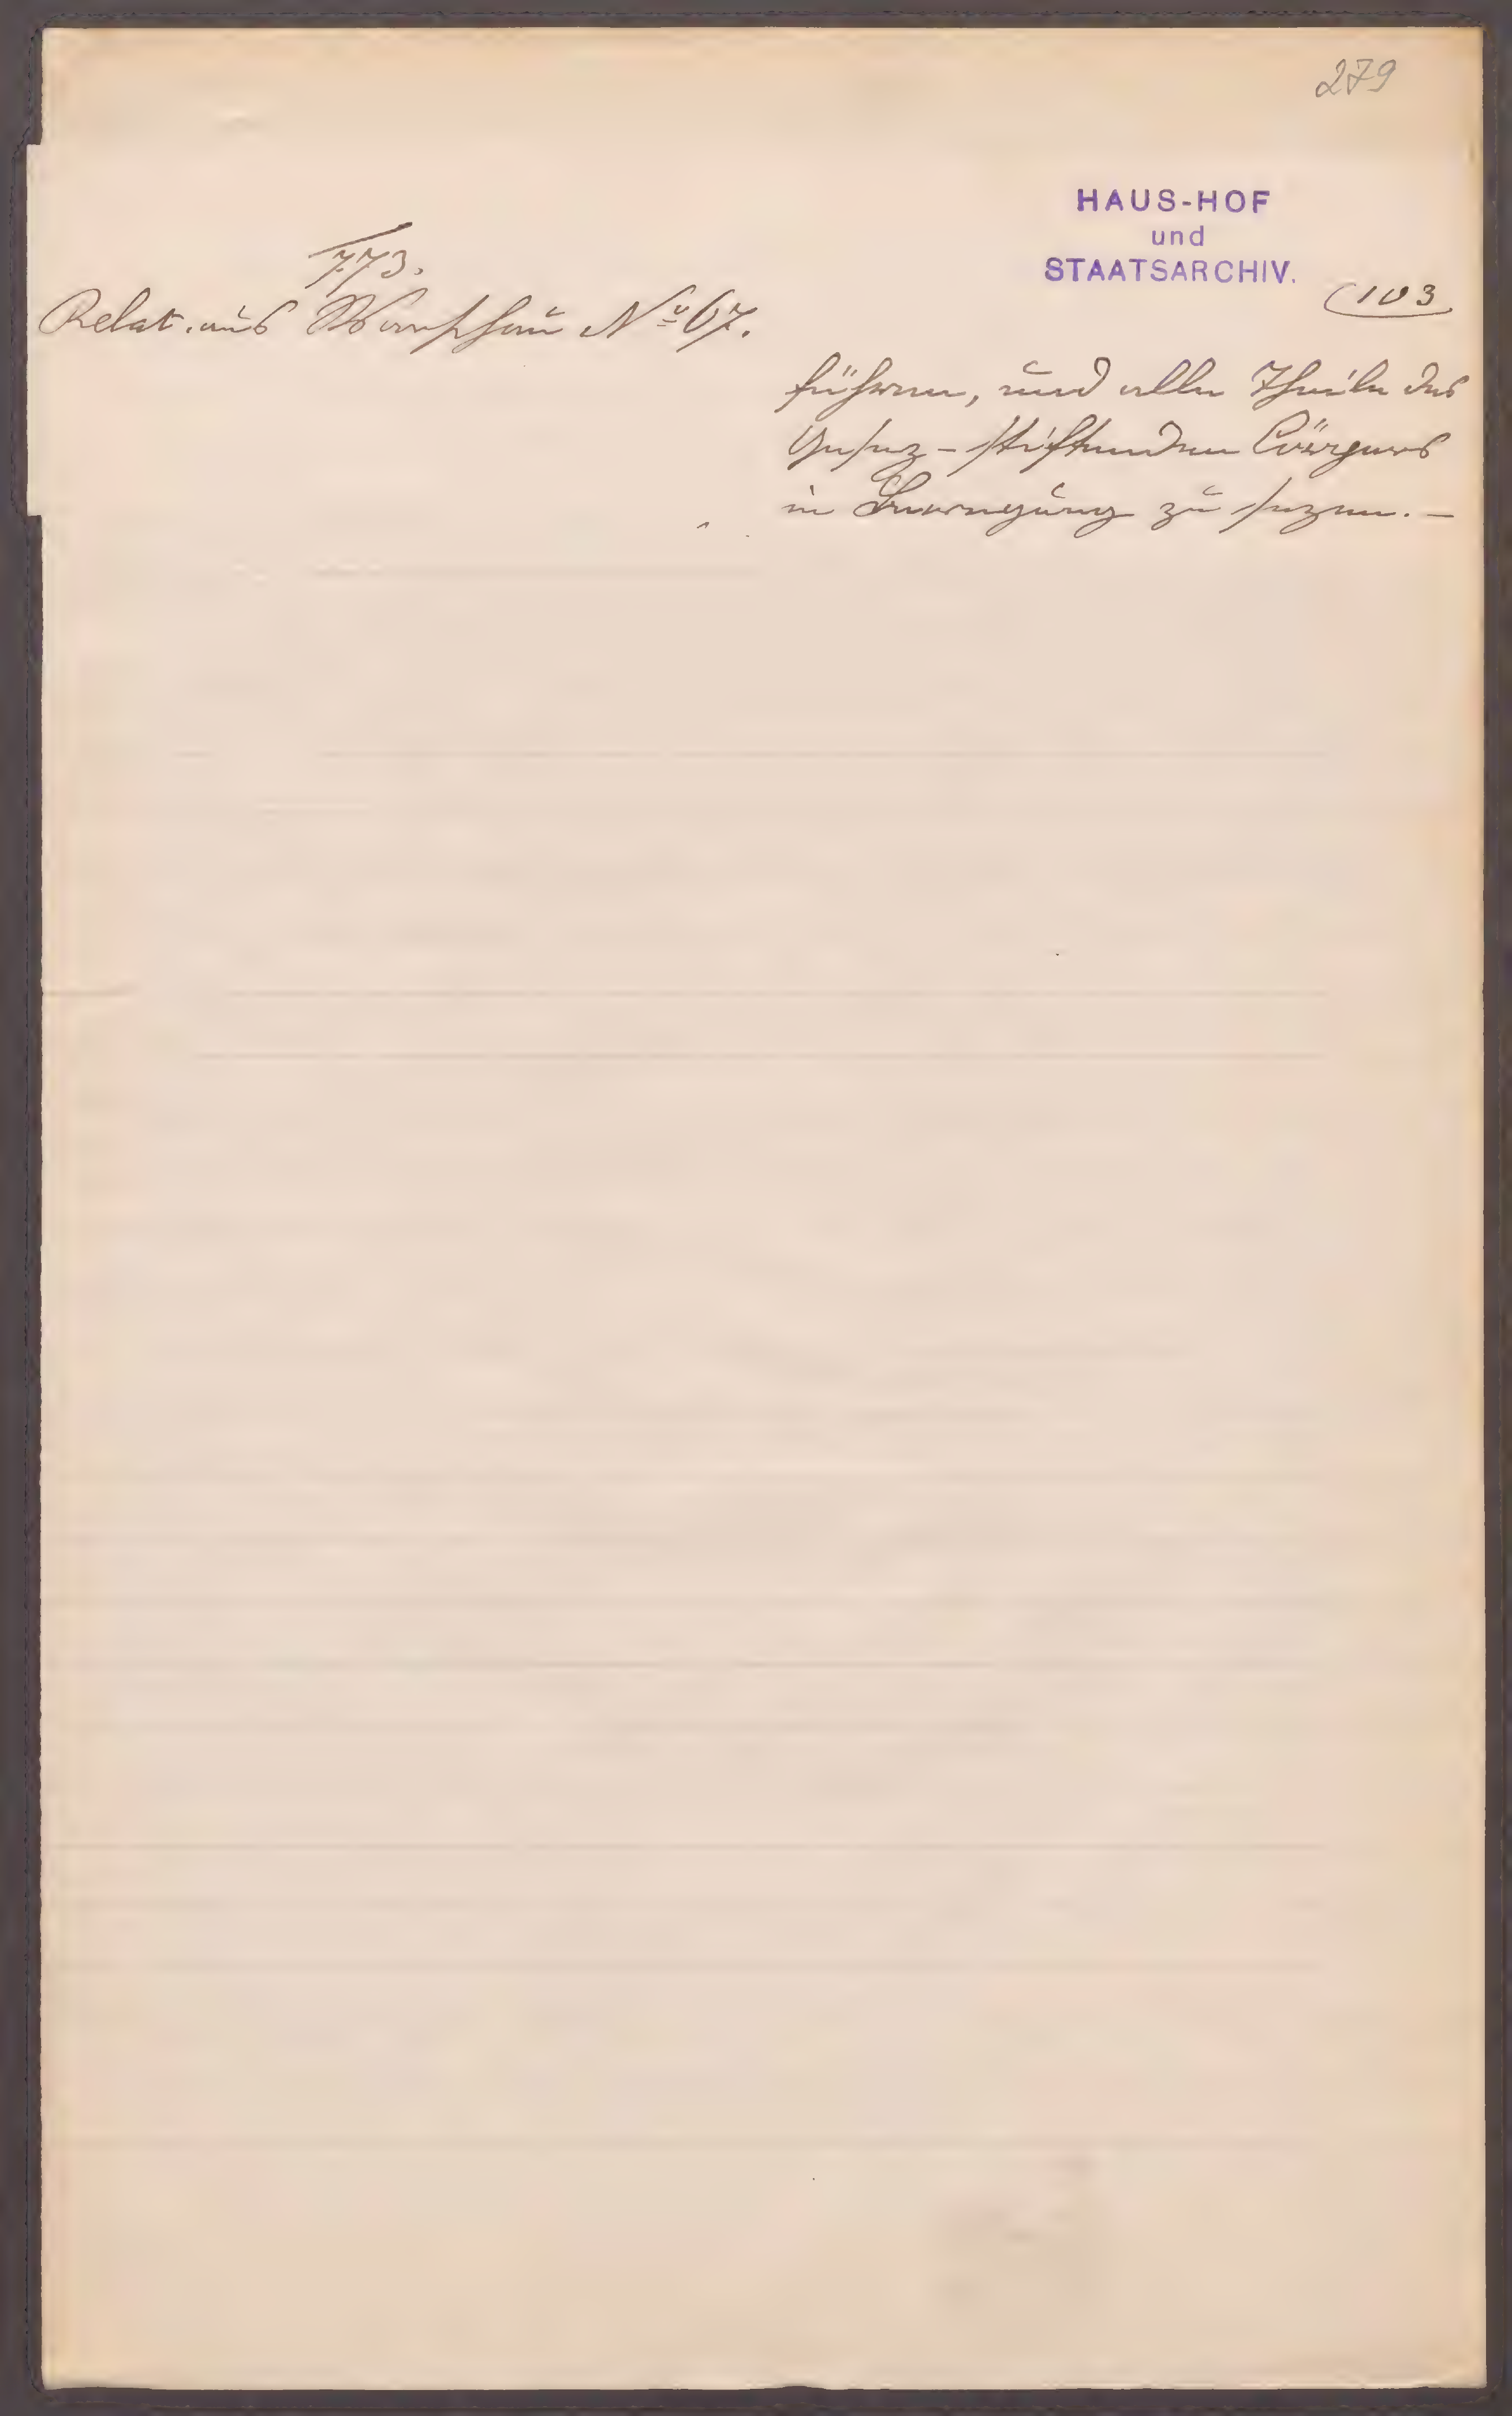 279
HAUS-HOF
und
STAATSARCHIV.
773.
103
Relat. aus Warschau No 67.
führen, und alle Theile des
Gesez-stiftenden Cörpers
in Bewegung zu sezen. —